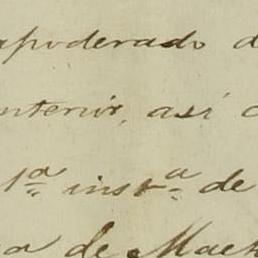 apoderado d
nterior, así c
1ª instª de
a de Mac